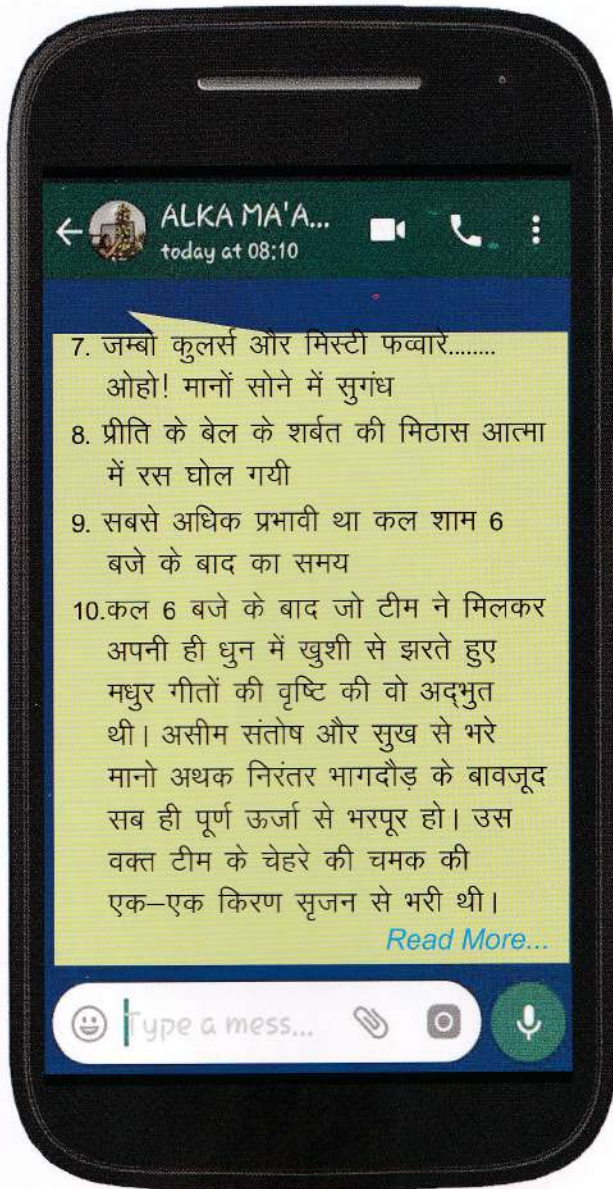 ALKA MA'A...
today at 08:10
7. जम्बो कुलर्स और मिस्टी फव्वारें........
ओहो! मानों सोने में सुगंध
8. प्रीति के बेल के शर्बत की मिठास आत्मा
में रस घोल गयी
9. सबसे अधिक प्रभावी था कल शाम 6
बजे के बाद का समय
10.कल 6 बजे के बाद जो टीम ने मिलकर
अपनी ही धुन में खुशी से झरते हुए
मधुर गीतों की वृष्टि की वो अद्भुत
थी। असीम संतोष और सुख से भरे
मानो अथक निरंतर भागदौड़ के बावजूद
सब ही पूर्ण ऊर्जा से भरपूर हो। उस
वक्त टीम के चेहरे की चमक की
एक–एक किरण सृजन से भरी थी।
Read More...
Type a mess...